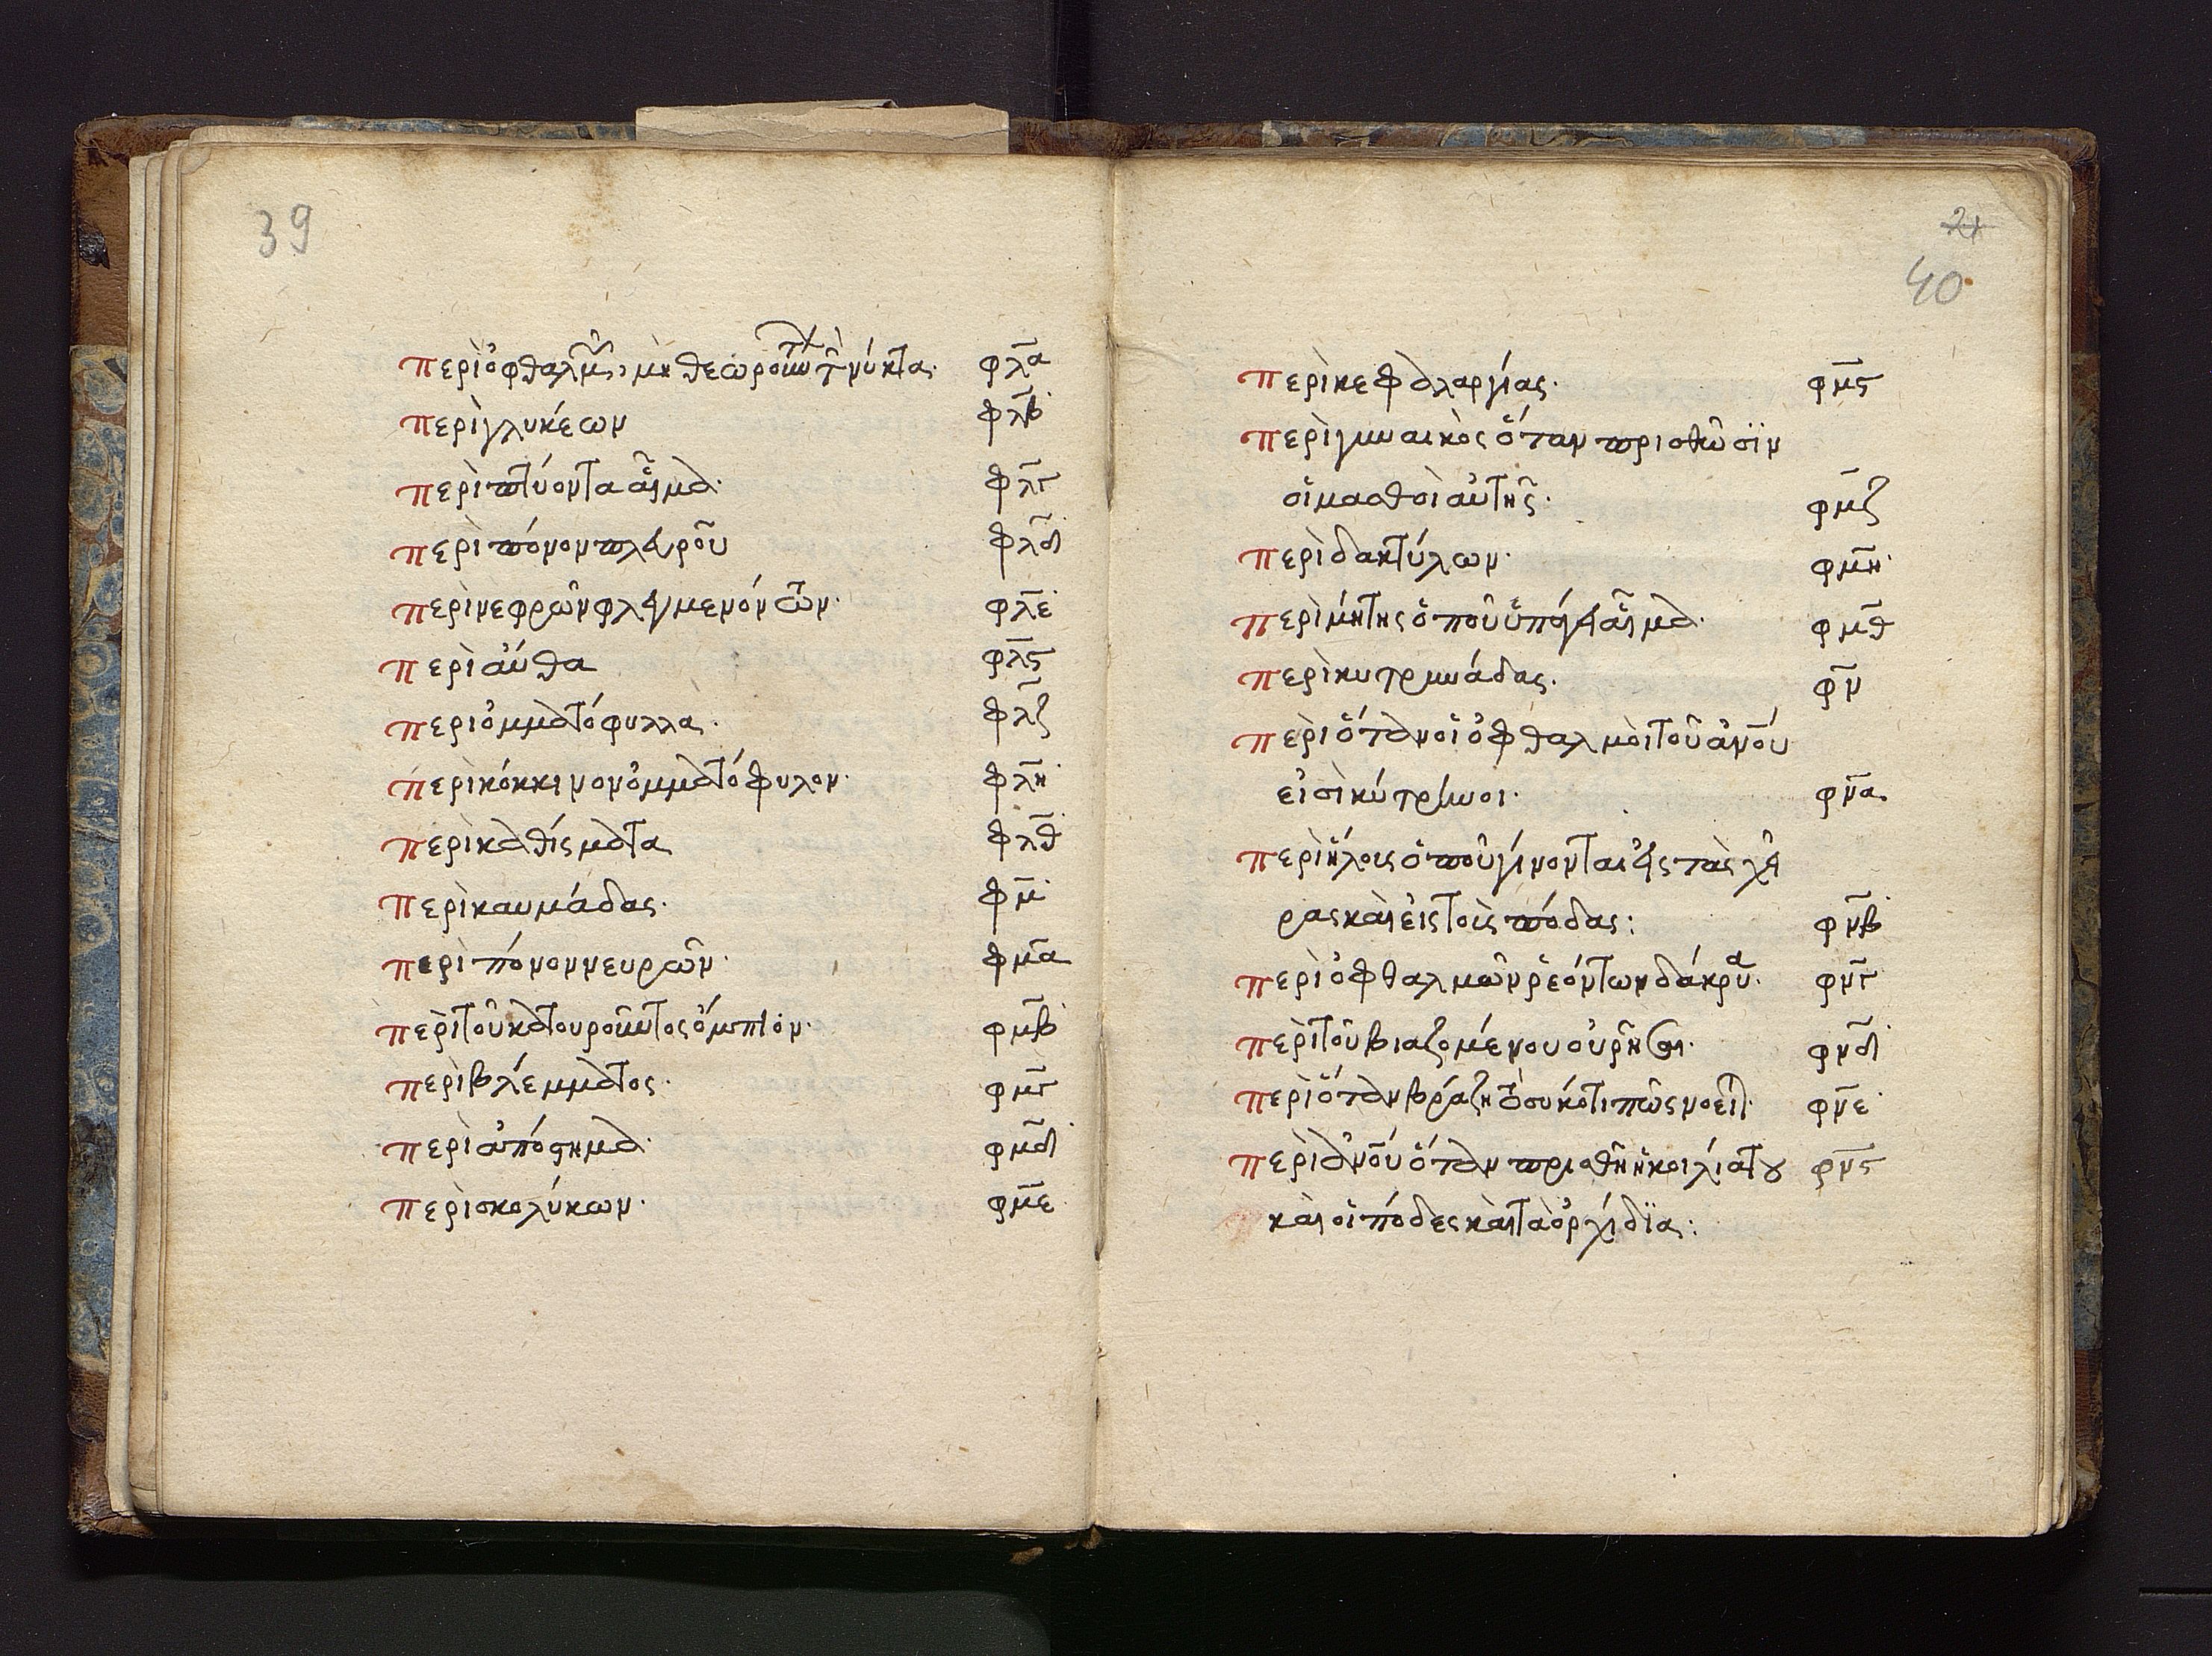 39
περὶ ὀφθαλμῶν, μὴ θεωρούντων τὰς νύκτας· φλα
περὶ γλυκέων φλβ
περὶ πτύοντα αἷμα· φλγ
περὶ πόνον πλευροῦ φλδ
περὶ νεφρῶν φλεγμενόντων· φλε
περὶ αὐθα φλϛ
περι ὀμματόφυλλα· φλζ
περὶ κόκκινον ὀμματόφυλον· φλη
περὶ καθίσματα φλθ
περὶ καυμάδας· φμ
περὶ πόνον νευρῶν· φμα
περὶ τοῦ κατουροῦντος ὄμπιον· φμβ
περὶ βλέμματος· φμγ
περὶ ἀπόστημα· φμδ
περὶ σκολύκων· φμε
21
40
περὶ κεφαλαργίας· φμϛ
περὶ γυναικὸς ὅταν πρισθῶσϊν
οἱ μασθοὶ αὐτῆς· φμζ
περὶ δακτύλων· φμη
περὶ μύτης ὁποῦ ὑπάγει αἷμα· φμθ
περὶ κυτρινάδας· φν
περὶ ὅταν οἱ ὀφθαλμοὶ τοῦ ἀνου
εἰσὶ κύτρινοι· φνα
περὶ ἥλους ὁποῦ γίνονται εἰς τὰς χεῖ
ρας καὶ εἰς τοὺς πόδας: φνβ
περὶ ὀφθαλμῶν ῥεόντων δάκρυα· φνγ
περὶ τοῦ βιαζομένου οὐρῆσαι· φνδ
περὶ ὅταν βράζη τὸ συκότι πῶς νοεῖτ· φνε
περὶ ἀνου ὅταν πρισθῆ ἡ κοιλία του φνϛ
καὶ οἱ πόδες καὶ τὰ ὀρχίδϊα: